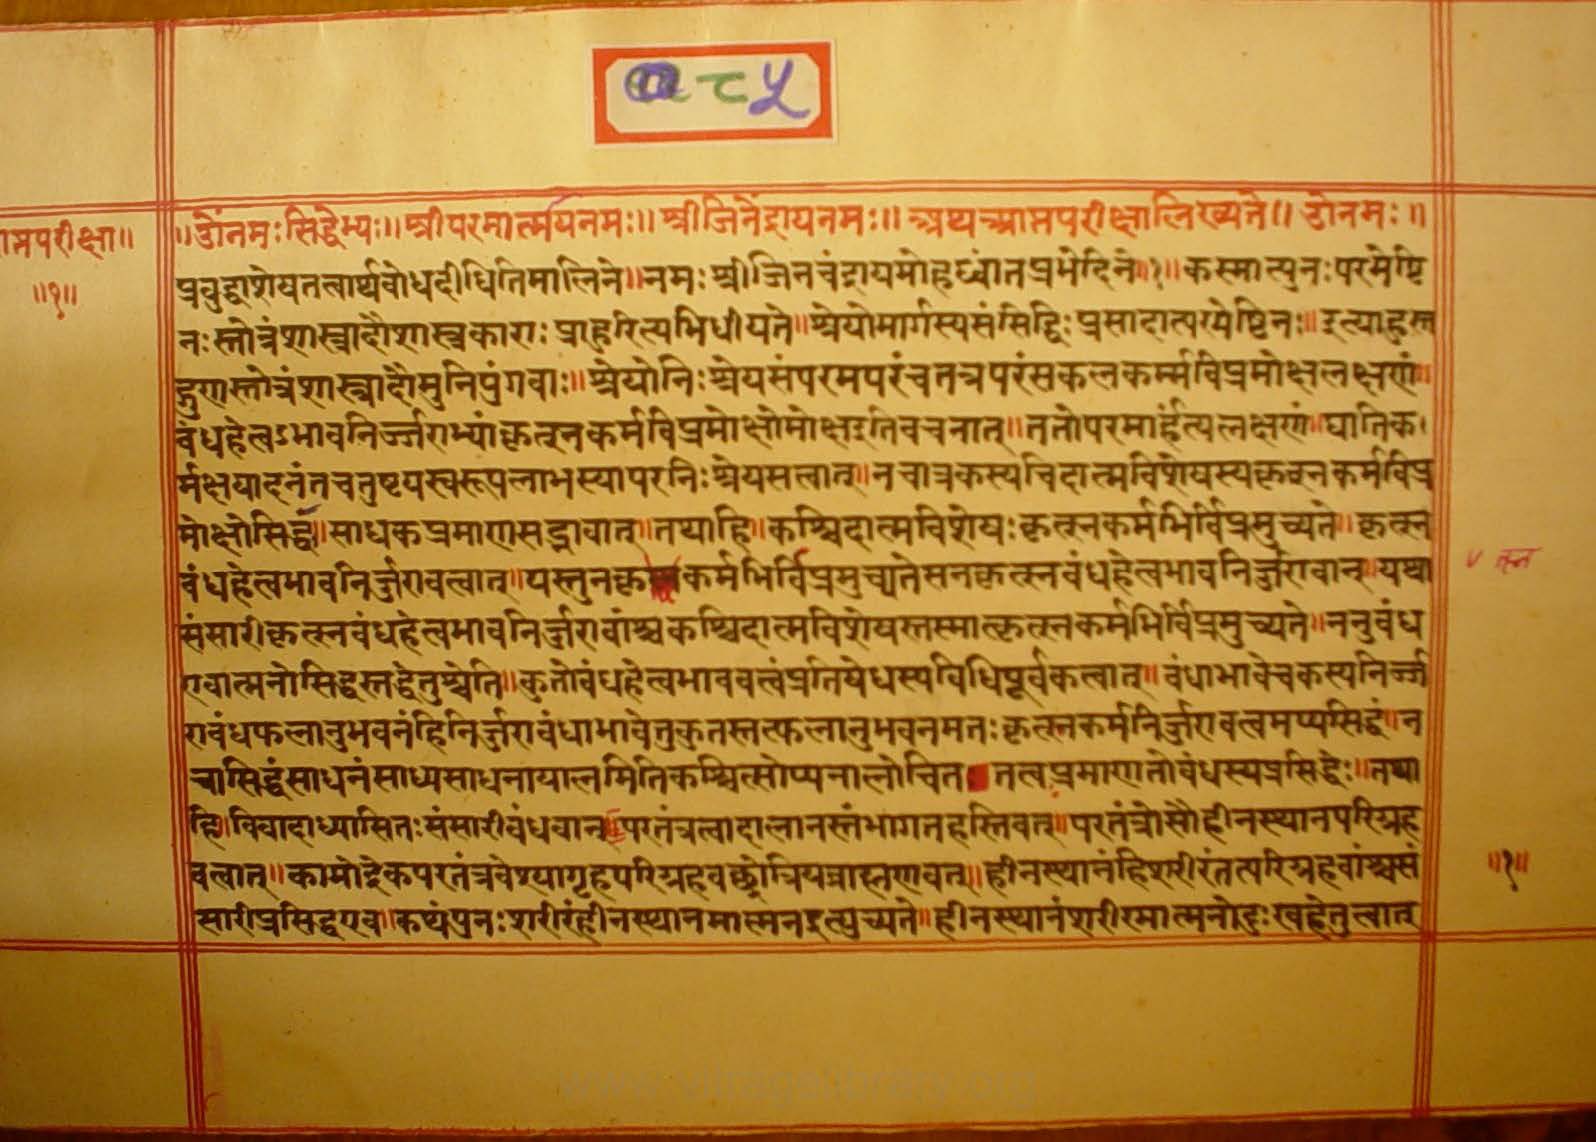 ८५
॥ॐनमःसिद्धेभ्यः॥श्रीपरमात्मयेनमः॥श्रीजिनेंद्रायनमः॥अथआप्तपरीक्षालिख्यते॥ॐनमः॥
प्तपरीक्षा॥
॥१॥
प्रबुद्धाशेषतत्वार्थबोधदीधितिमालिने॥नमःश्रीजिनचंद्रायमोहध्वांतप्रभेदिने॥१॥कस्मात्पुनःपरमेष्टि
नःस्तोत्रंशास्त्रादौशास्त्रकाराःप्राहुरित्यभिधीयते॥श्रेयोमार्गस्यसंसिद्धिःप्रसादात्परमेष्टिनः॥इत्याहुस्त
द्गुणस्तोत्रंशास्त्रादौमुनिपुंगवाः॥श्रेयोनिःश्रेयसंपरमपरंचतत्रपरंसकलकर्म्मविप्रमोक्षलक्षणं॥
बंधहेत्वऽभावनिर्ज्जराभ्यांकृत्स्नकर्मविप्रमोक्षोमोक्षइतिवचनात्॥ततोपरमार्हंत्यलक्षणं॥घातिक।
र्मक्षयादनंतचतुष्टयस्वरूपलाभस्यापरनिःश्रेयसत्वात्॥नचात्रकस्यचिदात्मविशेषस्यकृत्स्नकर्मविप्र
मोक्षोसिद्धः॥साधकप्रमाणसद्भावात्॥तथाहि॥कश्चिदात्मविशेषःकृत्स्नकर्मभिर्विप्रमुच्यते॥कृत्स्न
बंधहेत्वभावनिर्ज्जरावत्वात्॥यस्तुनकृ कर्मभिर्विप्रमुच्यतेसनकृत्स्नबंधहेत्वभावनिर्ज्जरावान्॥यथा
त्स्न
संसारीकृत्स्नबंधहेत्वभावनिर्ज्जरावांश्चकश्चिदात्मविशेषस्तस्मात्कृत्स्नकर्मभिर्विप्रमुच्यते॥ननुबंध
एवात्मनोसिद्धस्तद्धेतुश्चेति॥कुतोबंधहेत्वभाववत्वंप्रतिषेधस्यविधिपूर्वकत्वात्॥बंधाभावेचकस्यनिर्ज्ज
राबंधफलानुभवनंहिनिर्ज्जराबंधाभावेतुकुतस्तत्फलानुभवनमतःकृत्स्नकर्मनिर्ज्जरावत्वमप्यसिद्धं॥न
चासिद्धंसाधनंसाध्यसाधनायालमितिकश्चित्सोप्यनालोचित तत्वप्रमाणतोबंधस्यप्रसिद्धेः॥तथा
हि॥विवादाध्यासितःसंसारीबंधवान्परतंत्रत्वादालानस्तंभागतहस्तिवत्॥परतंत्रोसौहीनस्थानपरिग्रह
वत्वात्॥कामोद्रेकपरतंत्रवेश्यागृहपरिग्रहवच्छ्रोत्रियब्राह्मणवत्॥हीनस्थानंहिशरीरंतत्परिग्रहवांश्चसं
॥१॥
सारीप्रसिद्धएव॥कथंपुनःशरीरंहीनस्थानमात्मनइत्युच्यते॥हीनस्थानंशरीरमात्मनोदुःखहेतुत्वात्